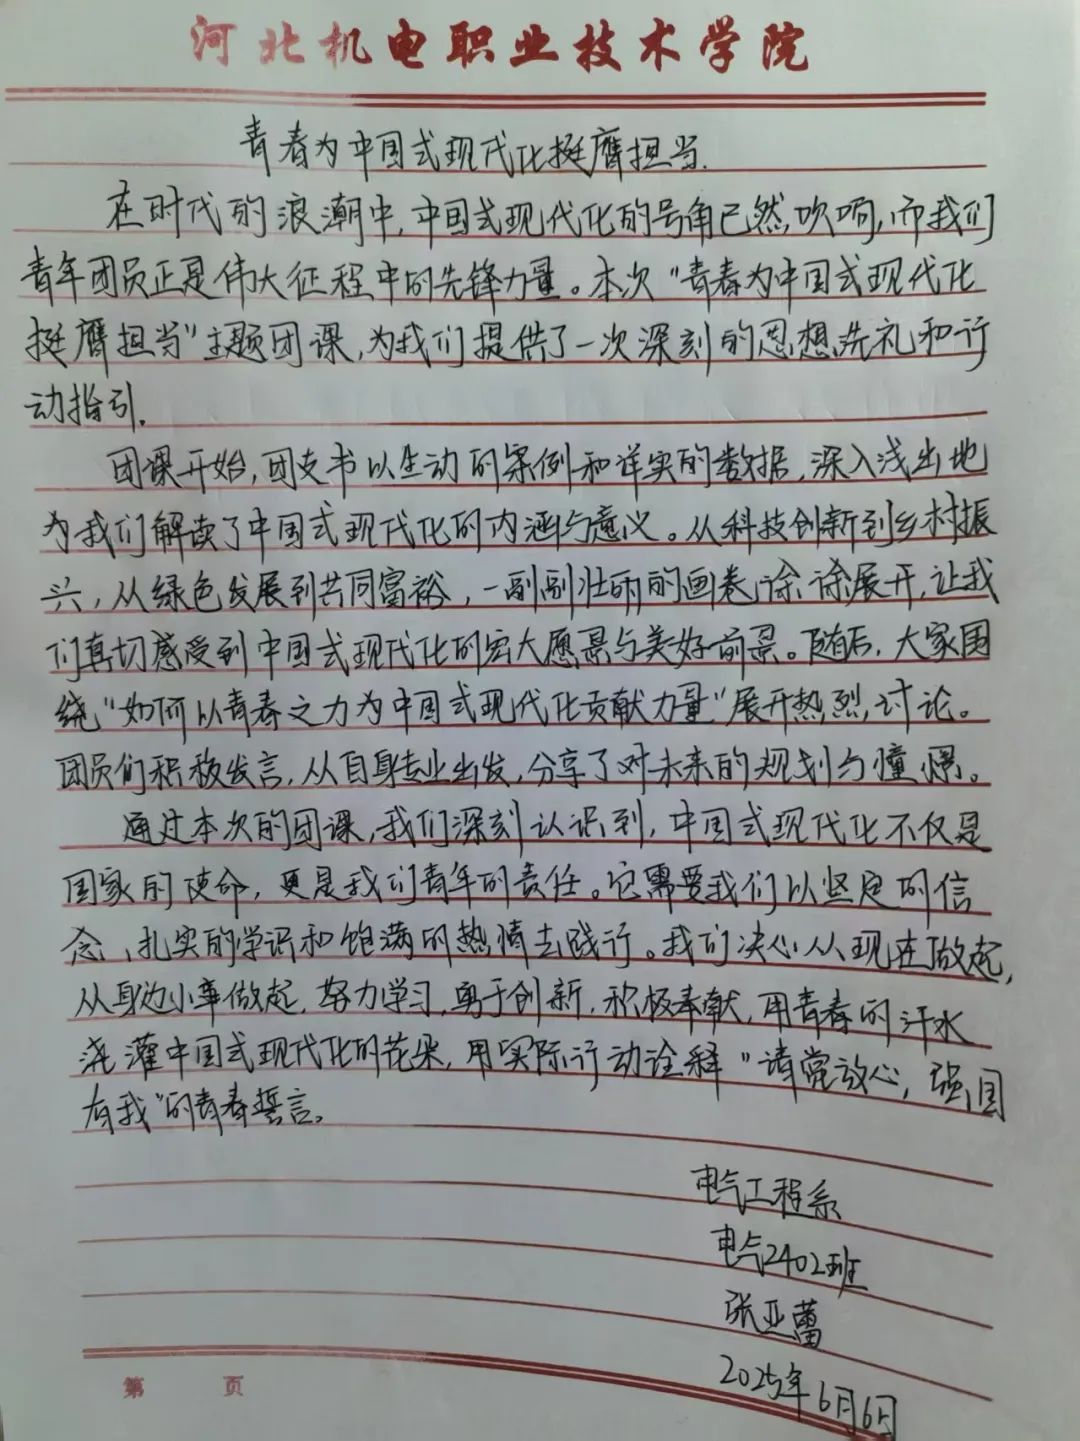 河北机电职业技术学院
青春为中国式现代化挺膺担当.
在时代的浪潮中,中国式现代化的号角已然吹响,而我们
青年团员正是伟大征程中的先锋力量。本次"青春为中国式现代化
挺膺担当"主题团课,为我们提供了一次深刻的思想洗礼和行
动指引.
团课开始,团支书以生动的案例和详实的数据,深入浅出地
为我们解读了中国式现代化的内涵与意义。从科技创新到乡村振
兴,从绿色发展到共同富裕,一副副壮丽的画卷徐徐展开,让我
们真切感受到中国式现代化的宏大愿景与美好前景。随后,大家围
绕"如何以青春之力为中国式现代化贡献力量"展开热烈讨论。
团员们积极发言,从自身专业出发,分享了对未来的规划与憧憬。
通过本次的团课,我们深刻认识到,中国式现代化不仅是
国家的使命,更是我们青年的责任。它需要我们以坚定的信
念、扎实的学识和饱满的热情去践行。我们决心从现在做起,
从身边小事做起,努力学习,勇于创新,积极奉献,用青春的汗水
浇灌中国式现代化的花朵,用实际行动诠释"请党放心,强国
有我"的青春誓言。
电气工程系
电气2402班
张亚蕾
2025年6月6日
第 页